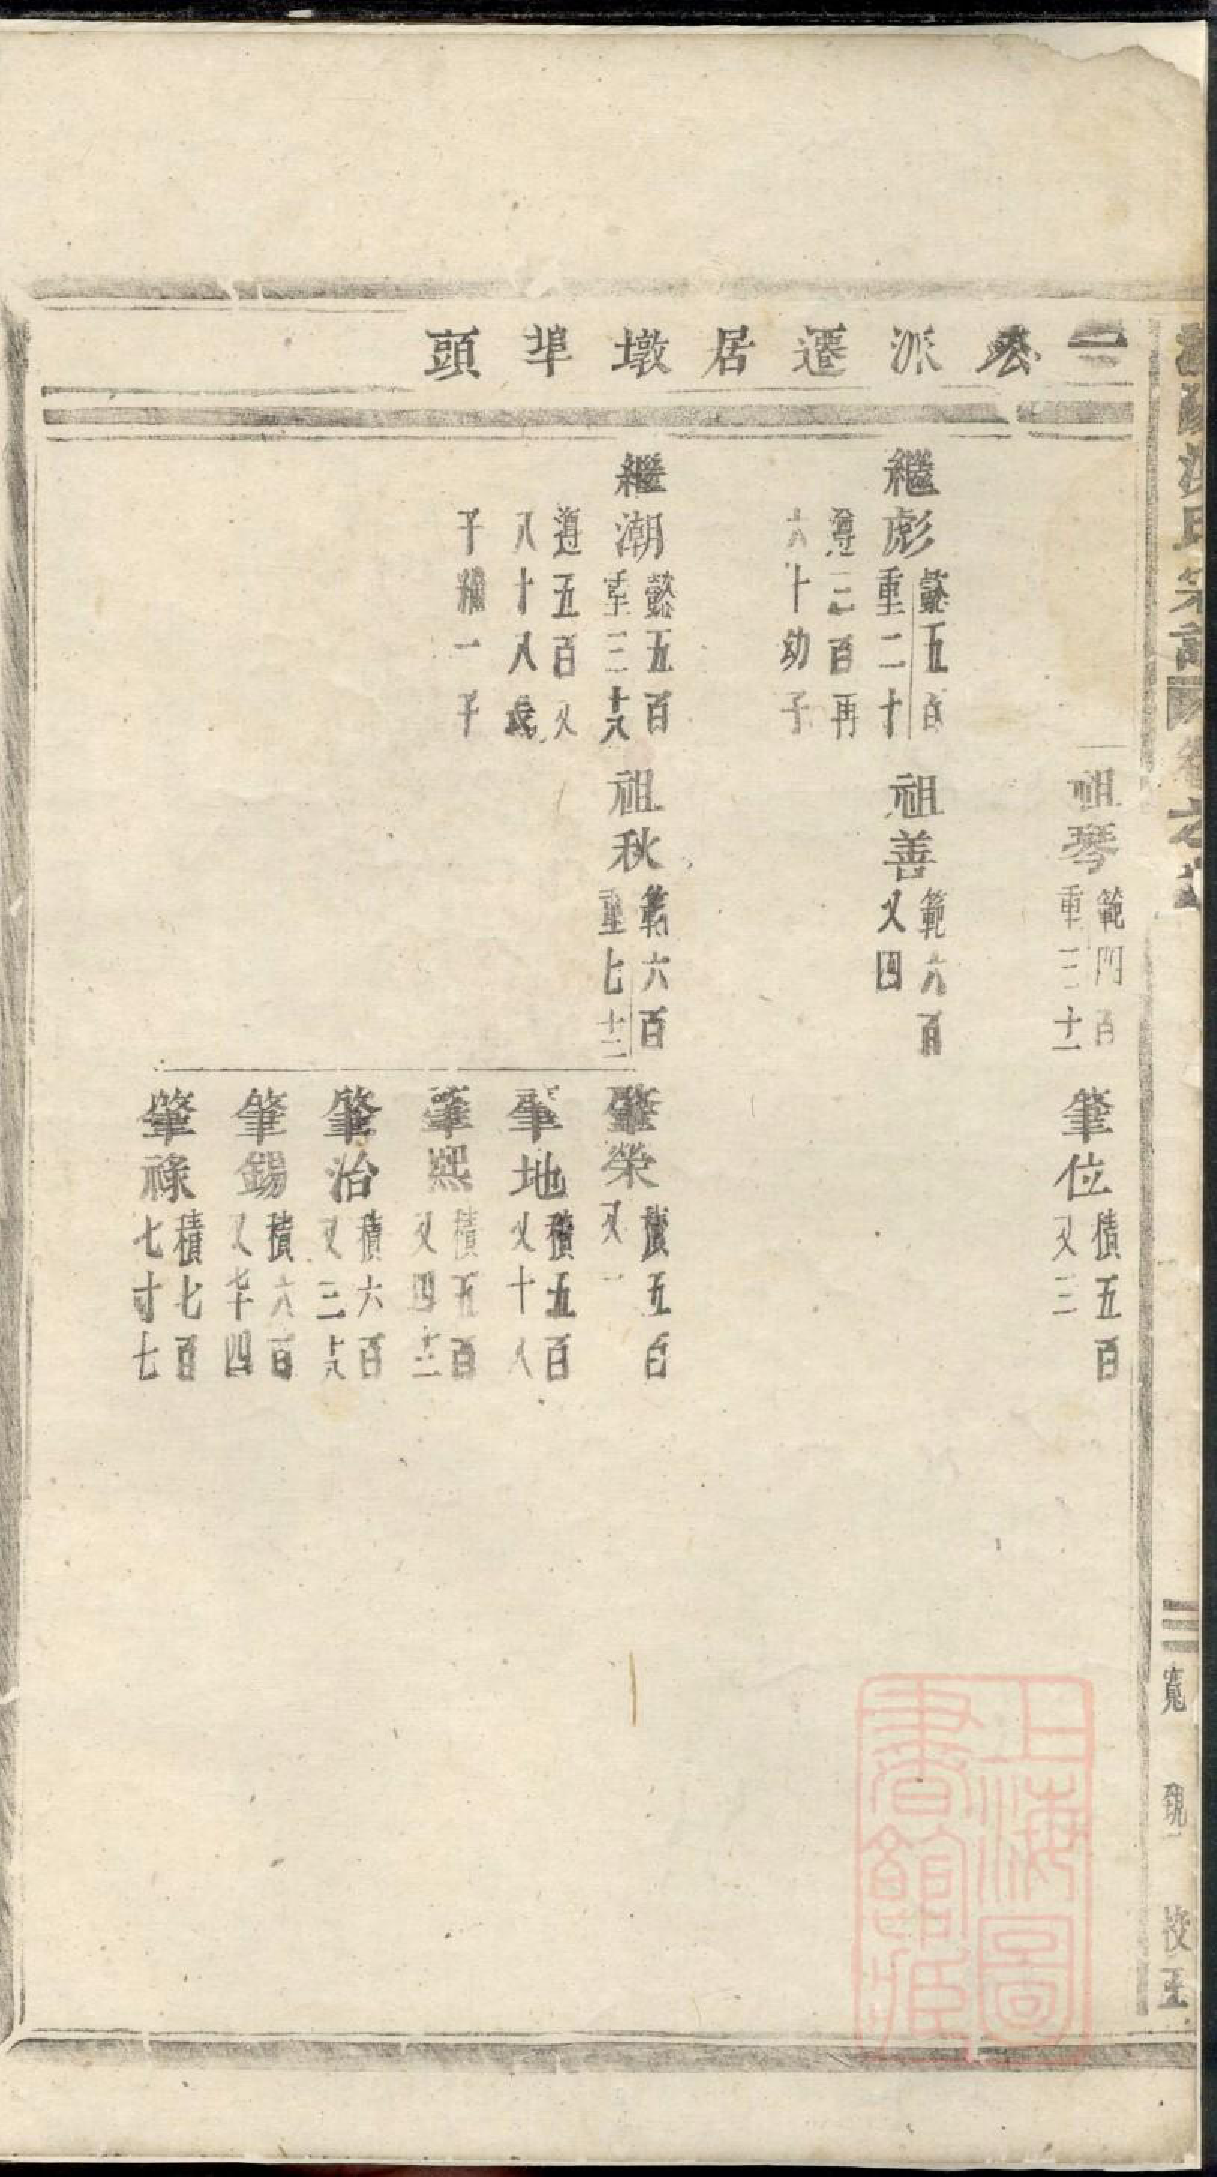 公派遷居墩埠頭
祖琴
範 百
重三十一
肇位
積五百
又三
繼彪
懿五百
重二十
遵三百再
六十幼子
祖善
範六百
又四
繼潮
懿五百
重三十八
遵五百又
八十八
子繼一子
祖秋
範六百
重七十三
肇榮
積五百
又一
肇地
積五百
又十八
肇熙
積五百
又四十二
肇治
積六百
又三十八
肇錫
積六百
又七十四
肇祿
積七百
七十七
氏宗譜 卷之
寬 魏 校正
上海圖書館藏